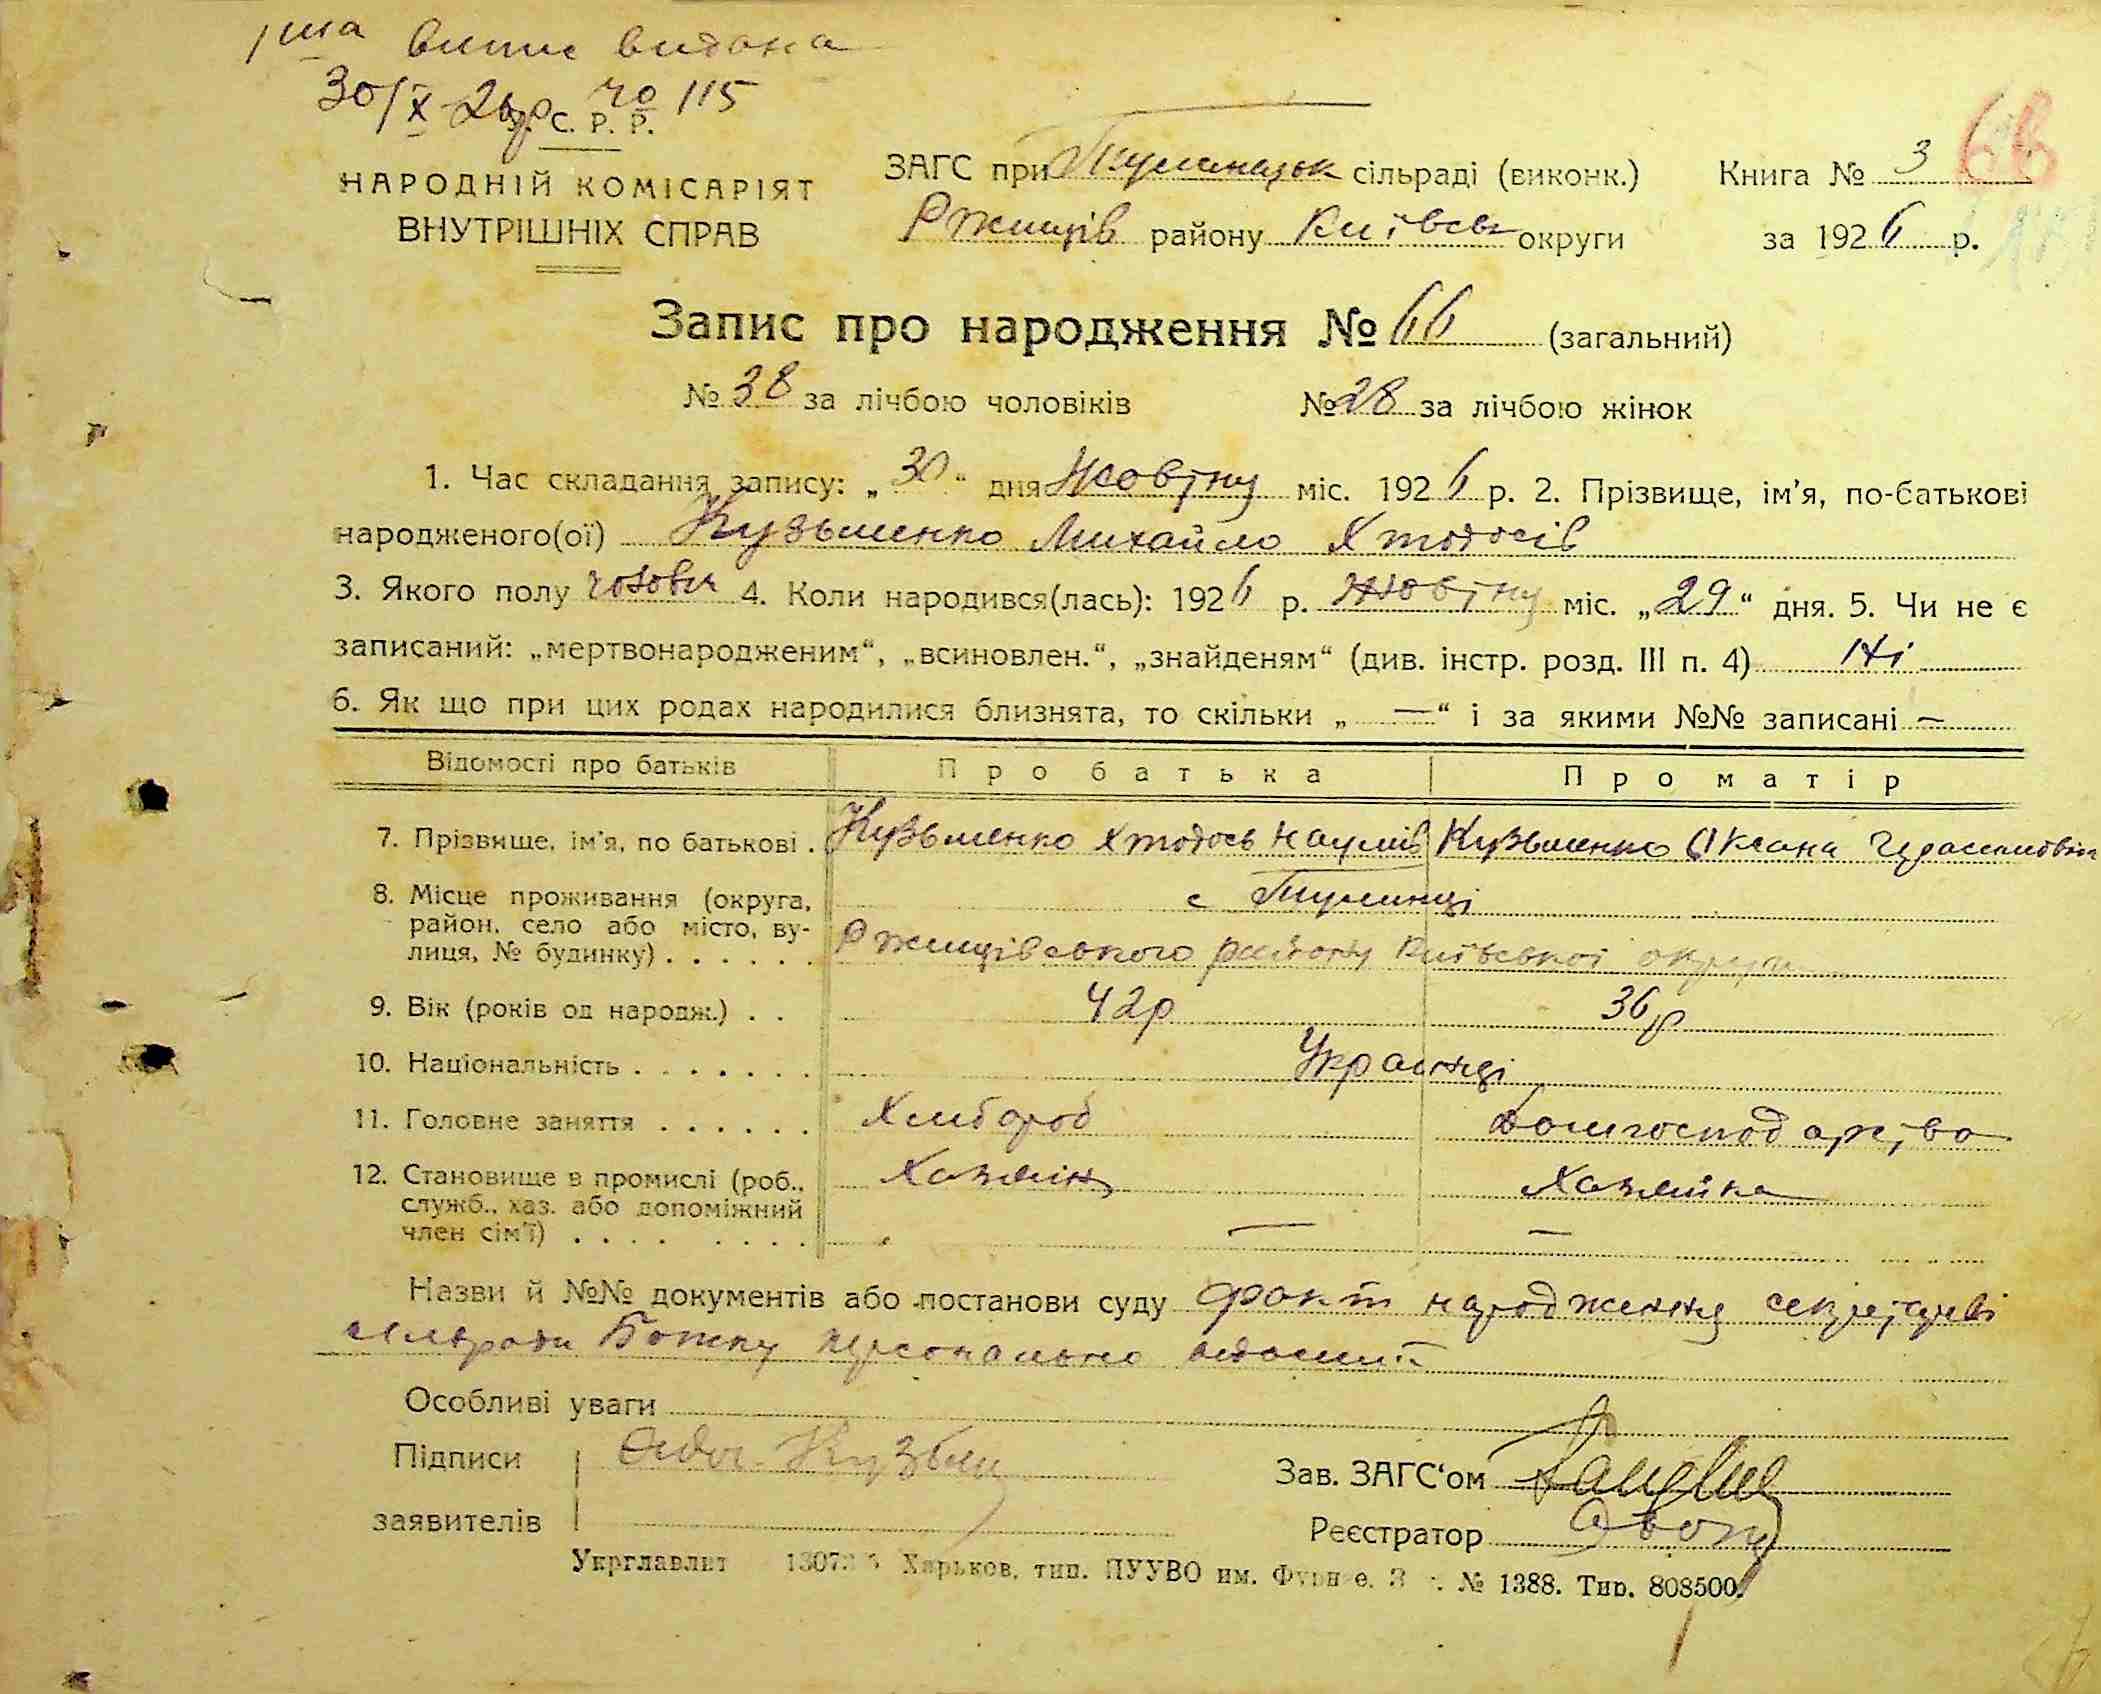 1ша випис видана
30/X 26р. №115
У. С. Р. Р.
НАРОДНІЙ КОМІСАРІЯТ
ВНУТРІШНІХ СПРАВ
ЗАГС при сільраді (виконк.)
Ржищів району Київськ округи
Книга № 3
за 1926 р.
Запис про народження № 66 (загальний)
№ 38 за лічбою чоловіків № 28 за лічбою жінок
1. Час складання запису: „30“ дня Жовтну міс. 1926 р. 2. Прізвище, ім’я, по-батькові
народженого(ої) Кузьменко Михайло Хтодосів
3. Якого полу чолович 4. Коли народився(лась): 1926 р. Жовтну міс. „29“ дня. 5. Чи не є
записаний: „мертвонародженим“, „всиновлен.“, „знайденям“ (див. інстр. розд. III п. 4) Ні
6. Як що при цих родах народилися близнята, то скільки „ — “ і за якими №№ записані —
Відомості про батьків Про батька Про матір
7. Прізвище, ім’я, по батькові . Кузьменко Хтодось Наумів Кузьменко Оксана
8. Місце проживання (округа, с
район, село або місто, ву-
лиця, № будинку) . . . . . . Ржищівського району Київської округи
9. Вік (років од народж.) . . 42р 36р
10. Національність . . . . . . . Українці
11. Головне заняття . . . . . . Хлібороб Домгосподарство
12. Становище в промислі (роб., Хазяїн Хазяйка
служб., хаз. або допоміжний
член сім’ї) . . . . . . . . — —
Назви й №№ документів або постанови суду факт народження секретареві
сільради Божку персонально відомий
Особливі уваги
Підписи Кузьм
заявителів
Зав. ЗАГС‘ом
Реєстратор
Укрглавлит Харьков, тип. ПУУВО им. Фрунзе. № 1388. Тир. 808500.